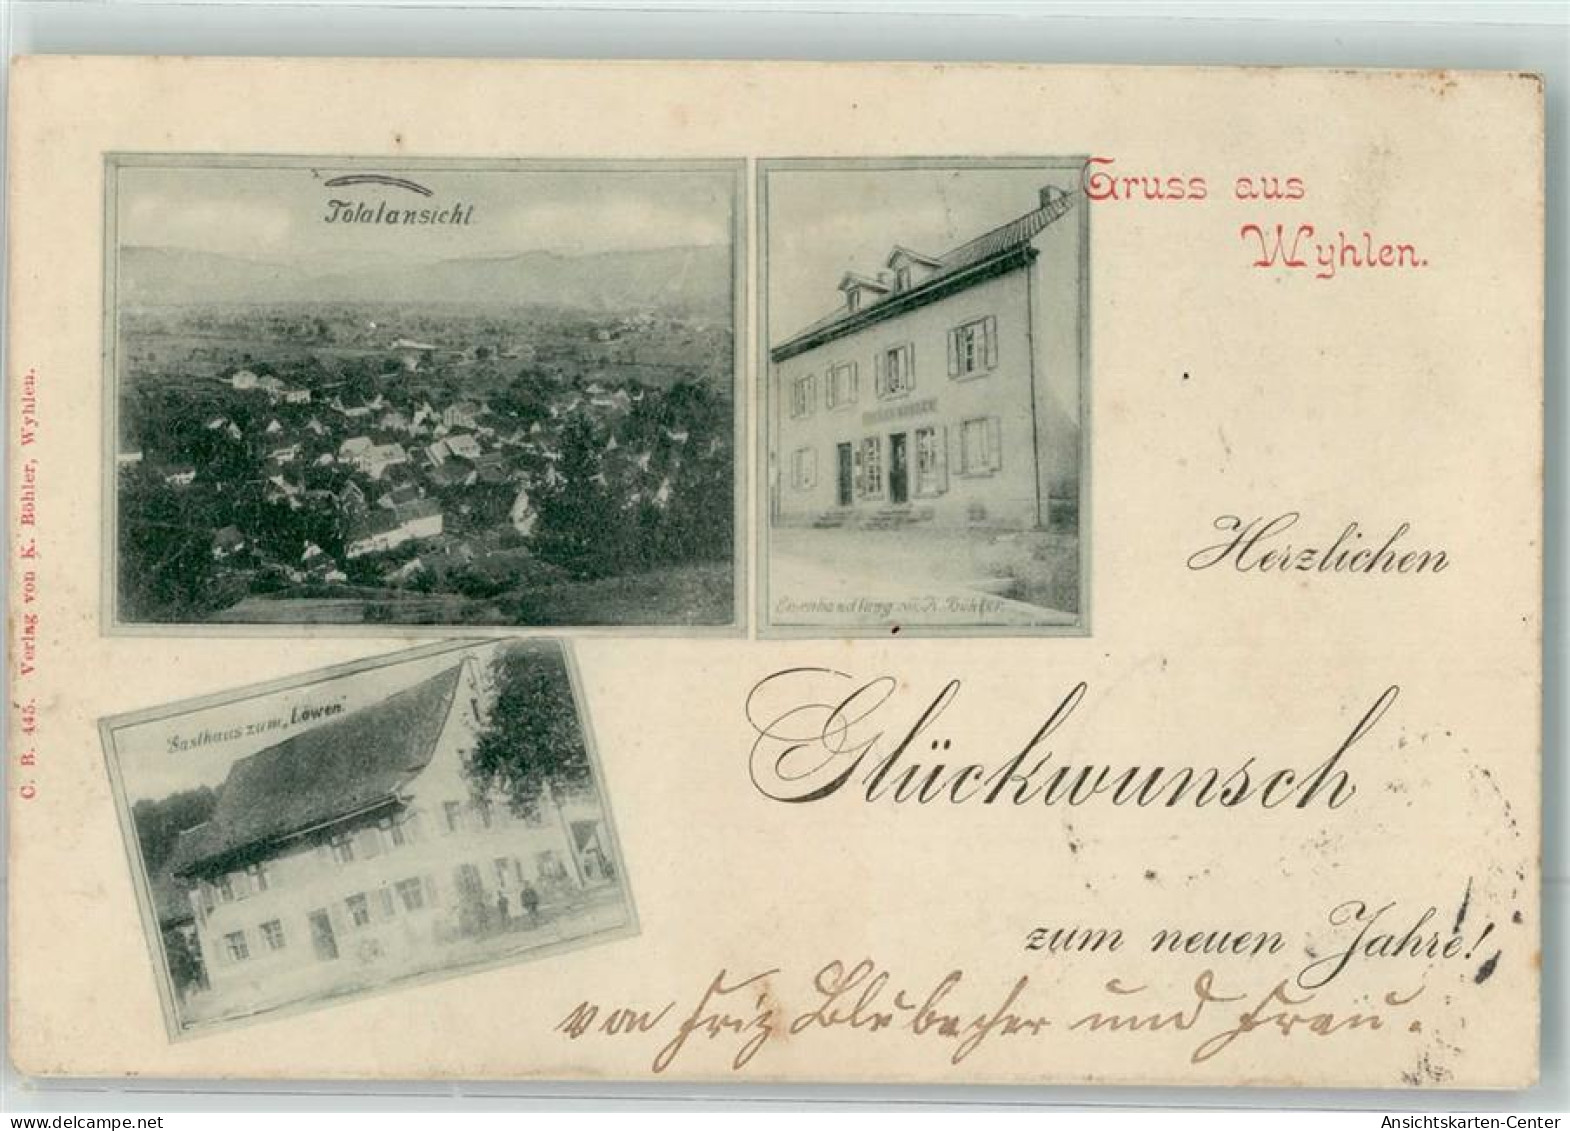 Totalansicht
Gruss aus
Wyhlen.
Eisenhandlung v. K. Böhler.
Gasthaus zum „Löwen“
C. B. 445. Verlag von K. Böhler, Wyhlen.
Herzlichen
Glückwunsch
zum neuen Jahre!
von Friz und Frau.
www.delcampe.net
Ansichtskarten-Center